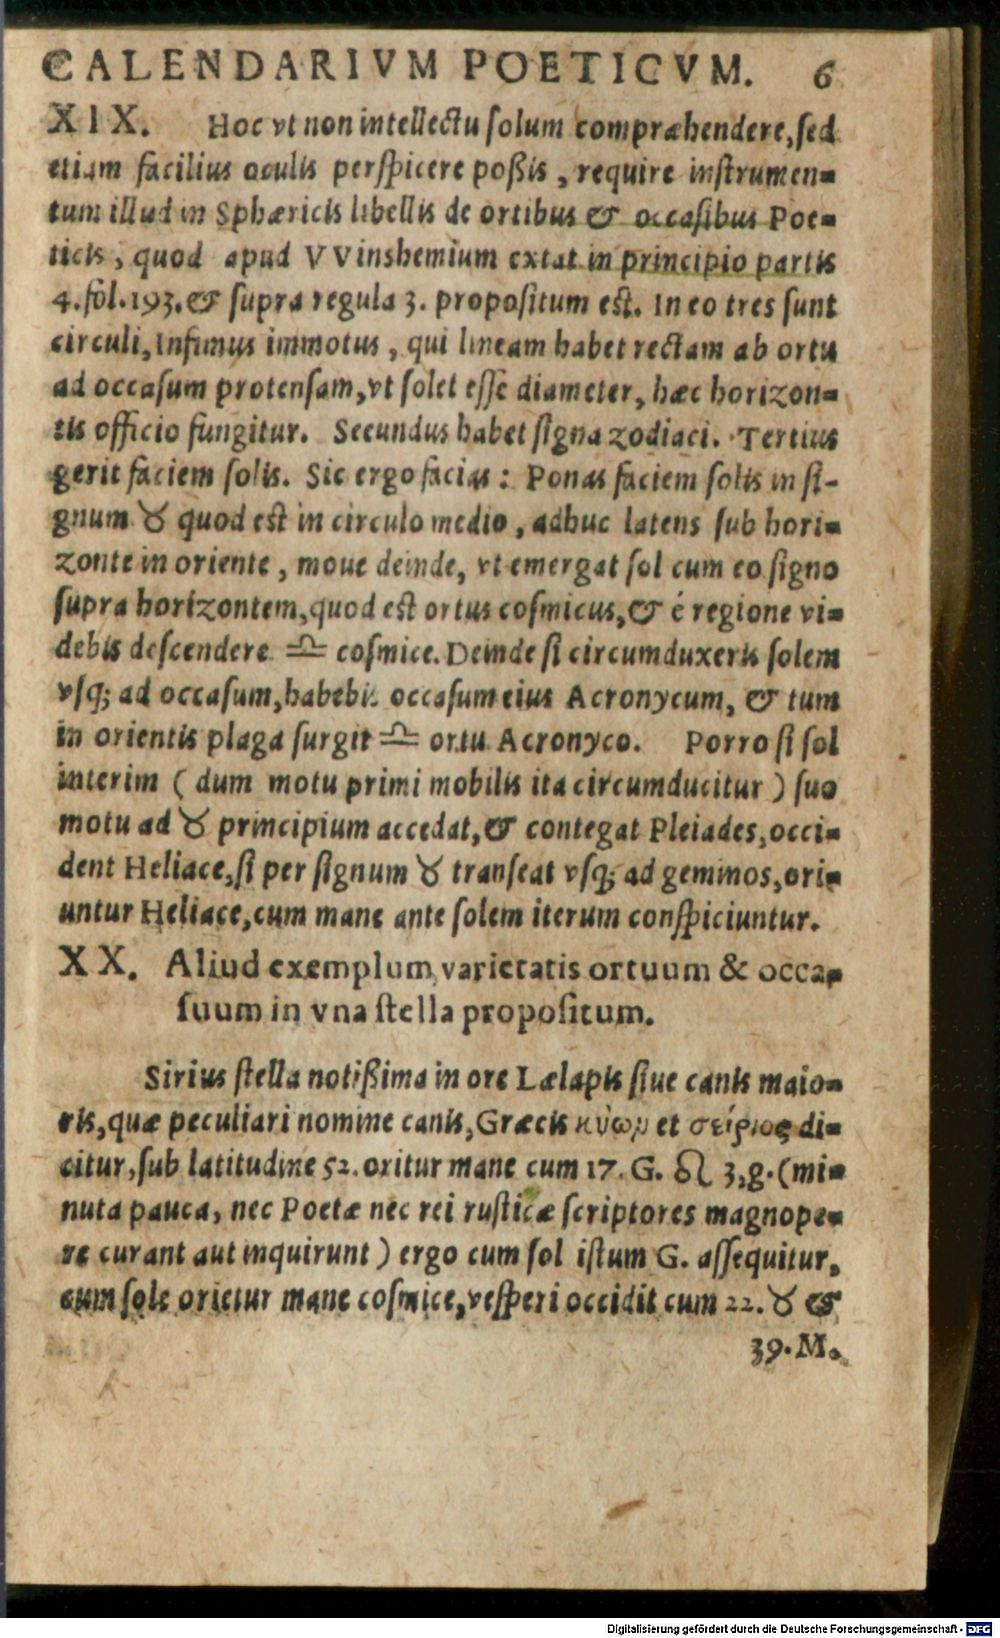 CALENDARIVM POETICVM. 6
XIX. Hoc vt non intellectu solum compræhendere, sed
etiam facilius oculis perspicere poßis, require instrumen-
tum illud in Sphæricis libellis de ortibus & occasibus Poe-
ticis, quod apud VVinshemium extat in principio partis
4. fol. 193. & supra regula 3. propositum est. In eo tres sunt
circuli, Infimus immotus, qui lineam habet rectam ab ortu
ad occasum protensam, vt solet esse diameter, hæc horizon-
tis officio fungitur. Secundus habet signa zodiaci. Tertius
gerit faciem solis. Sic ergo facias: Ponas faciem solis in si-
gnum ♉ quod est in circulo medio, adhuc latens sub hori-
zonte in oriente, moue deinde, vt emergat sol cum eo signo
supra horizontem, quod est ortus cosmicus, & é regione vi-
debis descendere ♎ cosmice. Deinde si circumduxeris solem
vsq; ad occasum, habebis occasum eius Acronycum, & tum
in orientis plaga surgit ♎ ortu Acronyco. Porro si sol
interim (dum motu primi mobilis ita circumducitur) suo
motu ad ♉ principium accedat, & contegat Pleiades, occi-
dent Heliace, si per signum ♉ transeat vsq; ad geminos, ori-
untur Heliace, cum mane ante solem iterum conspiciuntur.
XX. Aliud exemplum varietatis ortuum & occa-
suum in vna stella propositum.
Sirius stella notißima in ore Lælapis siue canis maio-
ris, quæ peculiari nomine canis, Græcis κύων et σείριος di-
citur, sub latitudine 52. oritur mane cum 17. G. ♌ 3, g. (mi-
nuta pauca, nec Poetæ nec rei rusticæ scriptores magnope-
re curant aut inquirunt) ergo cum sol istum G. assequitur,
cum sole orietur mane cosmice, vesperi occidit cum 22. ♉ &
39. M.
Digitalisierung gefördert durch die Deutsche Forschungsgemeinschaft - DFG